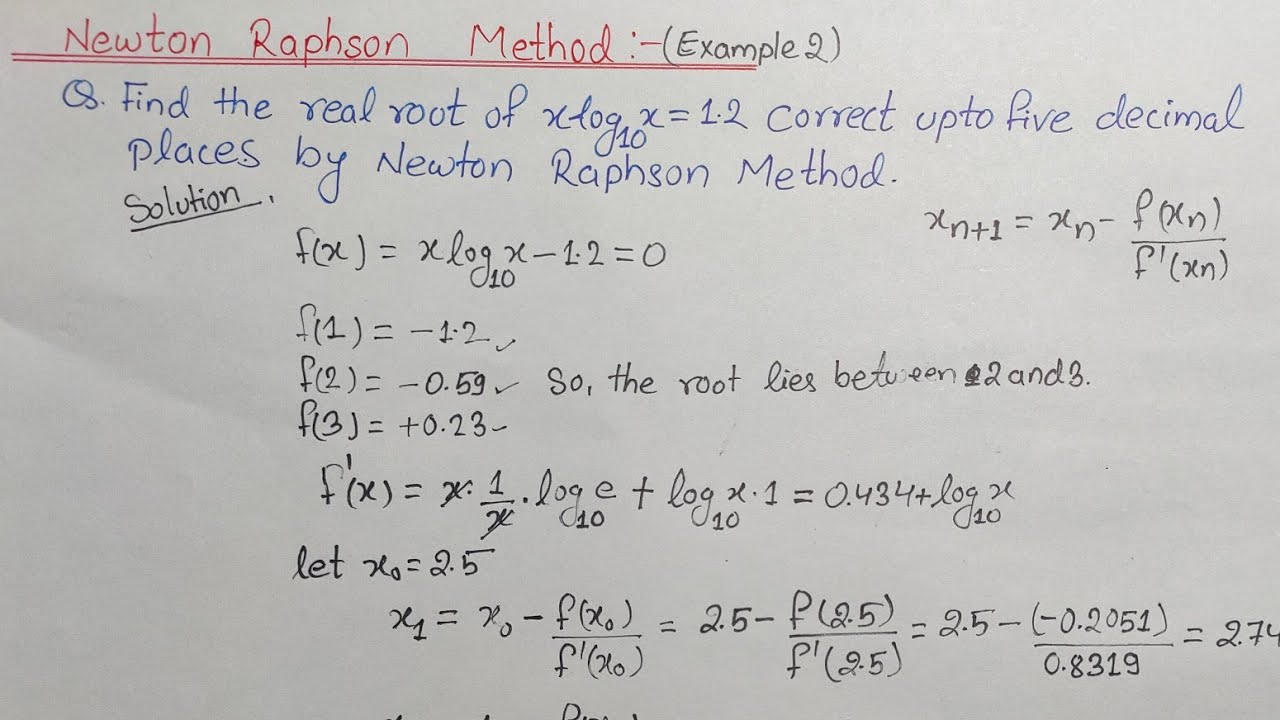 Newton Raphson Method :- (Example 2)
Q. Find the real root of xlog₁₀x = 1.2 correct upto five decimal
places by Newton Raphson Method.
Solution.
xₙ₊₁ = xₙ - f(xₙ)/f'(xₙ)
f(x) = x log₁₀x - 1.2 = 0
f(1) = -1.2 ✓
f(2) = -0.59 ✓ So, the root lies between 2 and 3.
f(3) = +0.23 -
f'(x) = x · 1/x · log₁₀e + log₁₀x · 1 = 0.434 + log₁₀x
let x₀ = 2.5
x₁ = x₀ - f(x₀)/f'(x₀) = 2.5 - f(2.5)/f'(2.5) = 2.5 - (-0.2051)/0.8319 = 2.74